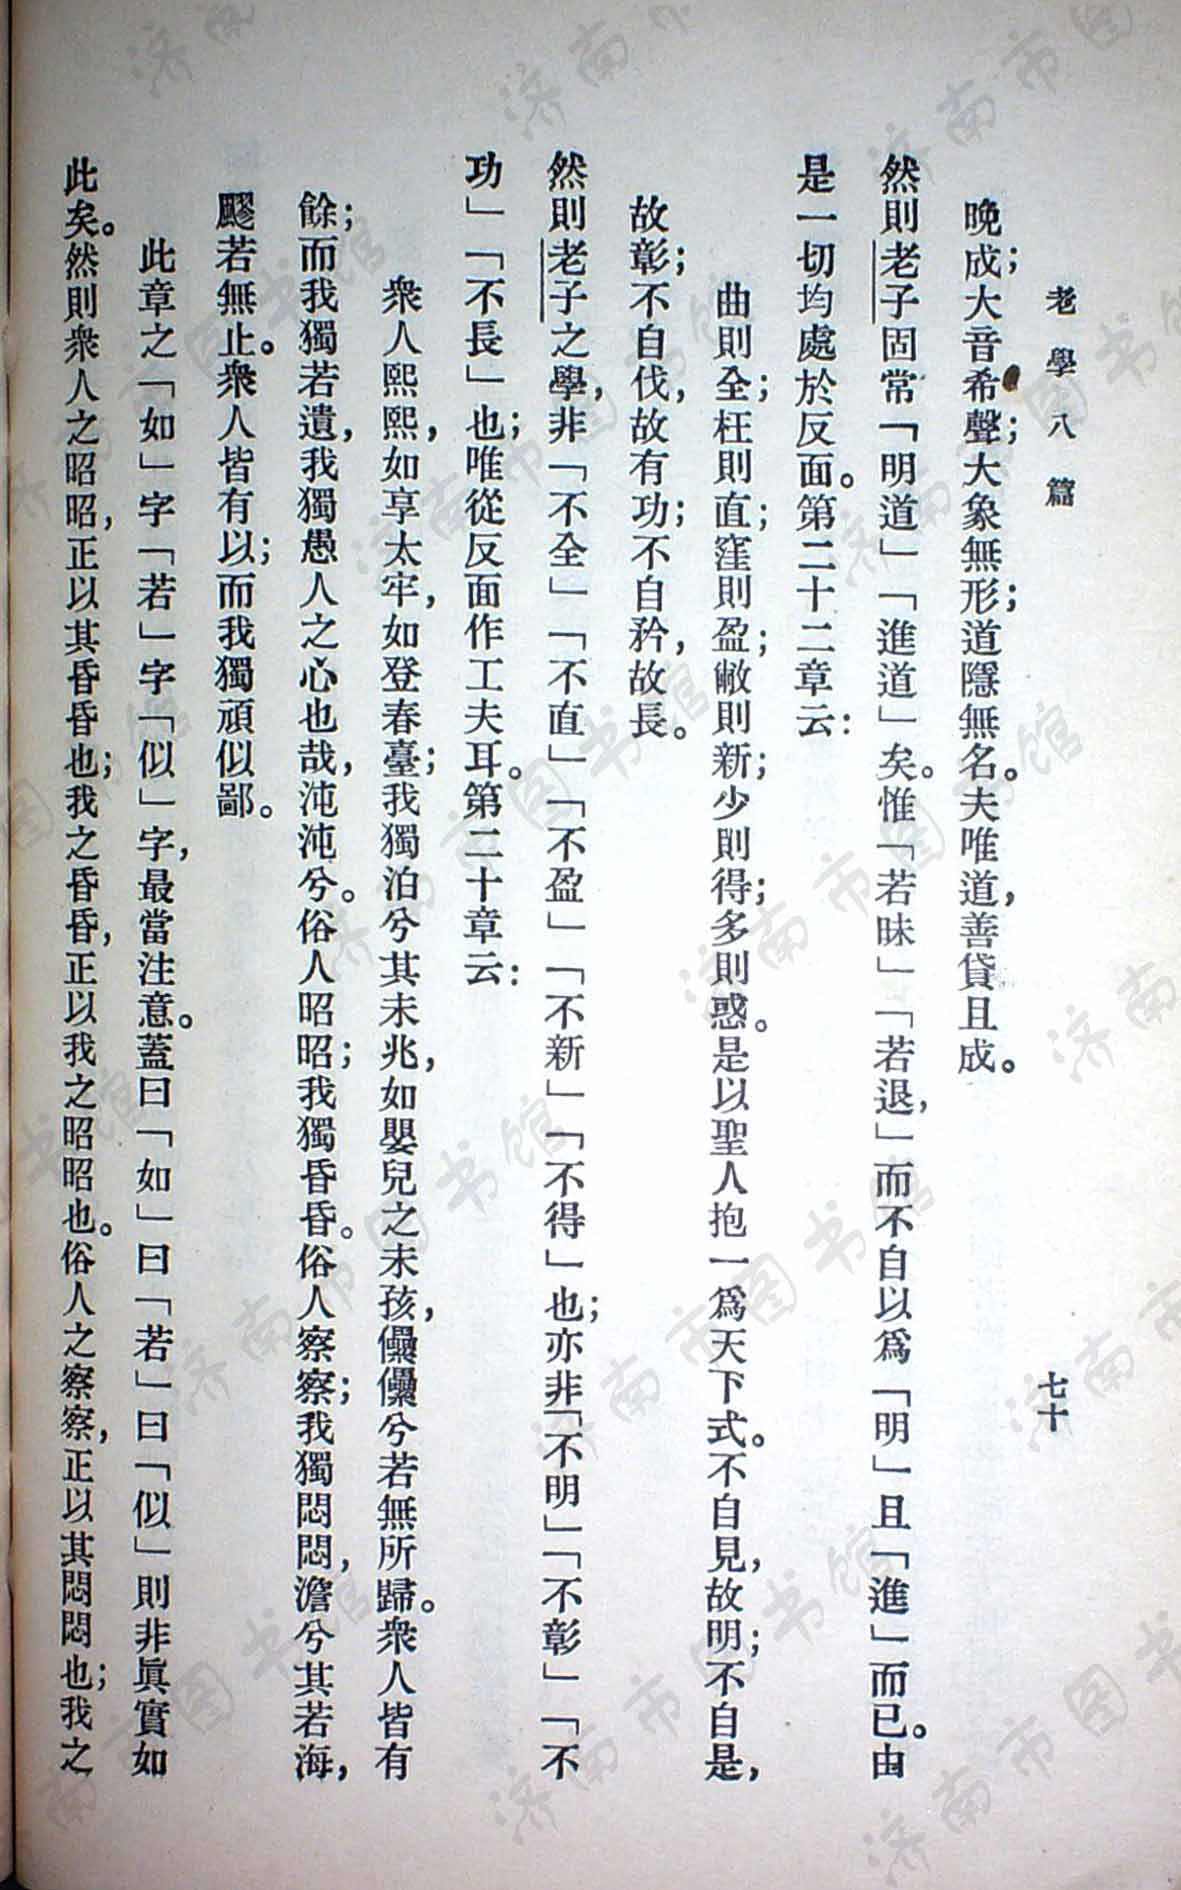 老學八篇
七十
晚成；大音希聲；大象無形；道隱無名。夫唯道，善貸且成。
然則老子固常「明道」「進道」矣。惟「若昧」「若退，」而不自以爲「明」且「進」而已。由
是一切均處於反面。第二十二章云：
曲則全；枉則直；窪則盈；敝則新；少則得；多則惑。是以聖人抱一爲天下式。不自見，故明；不自是，
故彰；不自伐，故有功；不自矜，故長。
然則老子之學，非「不全」「不直」「不盈」「不新」「不得」也；亦非「不明」「不彰」「不
功」「不長」也；唯從反面作工夫耳。第二十章云：
衆人熙熙，如享太牢，如登春臺；我獨泊兮其未兆，如嬰兒之未孩，儽儽兮若無所歸。衆人皆有
餘；而我獨若遺，我獨愚人之心也哉，沌沌兮。俗人昭昭；我獨昏昏。俗人察察；我獨悶悶，澹兮其若海，
飂若無止。衆人皆有以；而我獨頑似鄙。
此章之「如」字「若」字「似」字，最當注意。蓋曰「如」曰「若」曰「似」則非眞實如
此矣。然則衆人之昭昭，正以其昏昏也；我之昏昏，正以我之昭昭也。俗人之察察，正以其悶悶也；我之
济南市图书馆